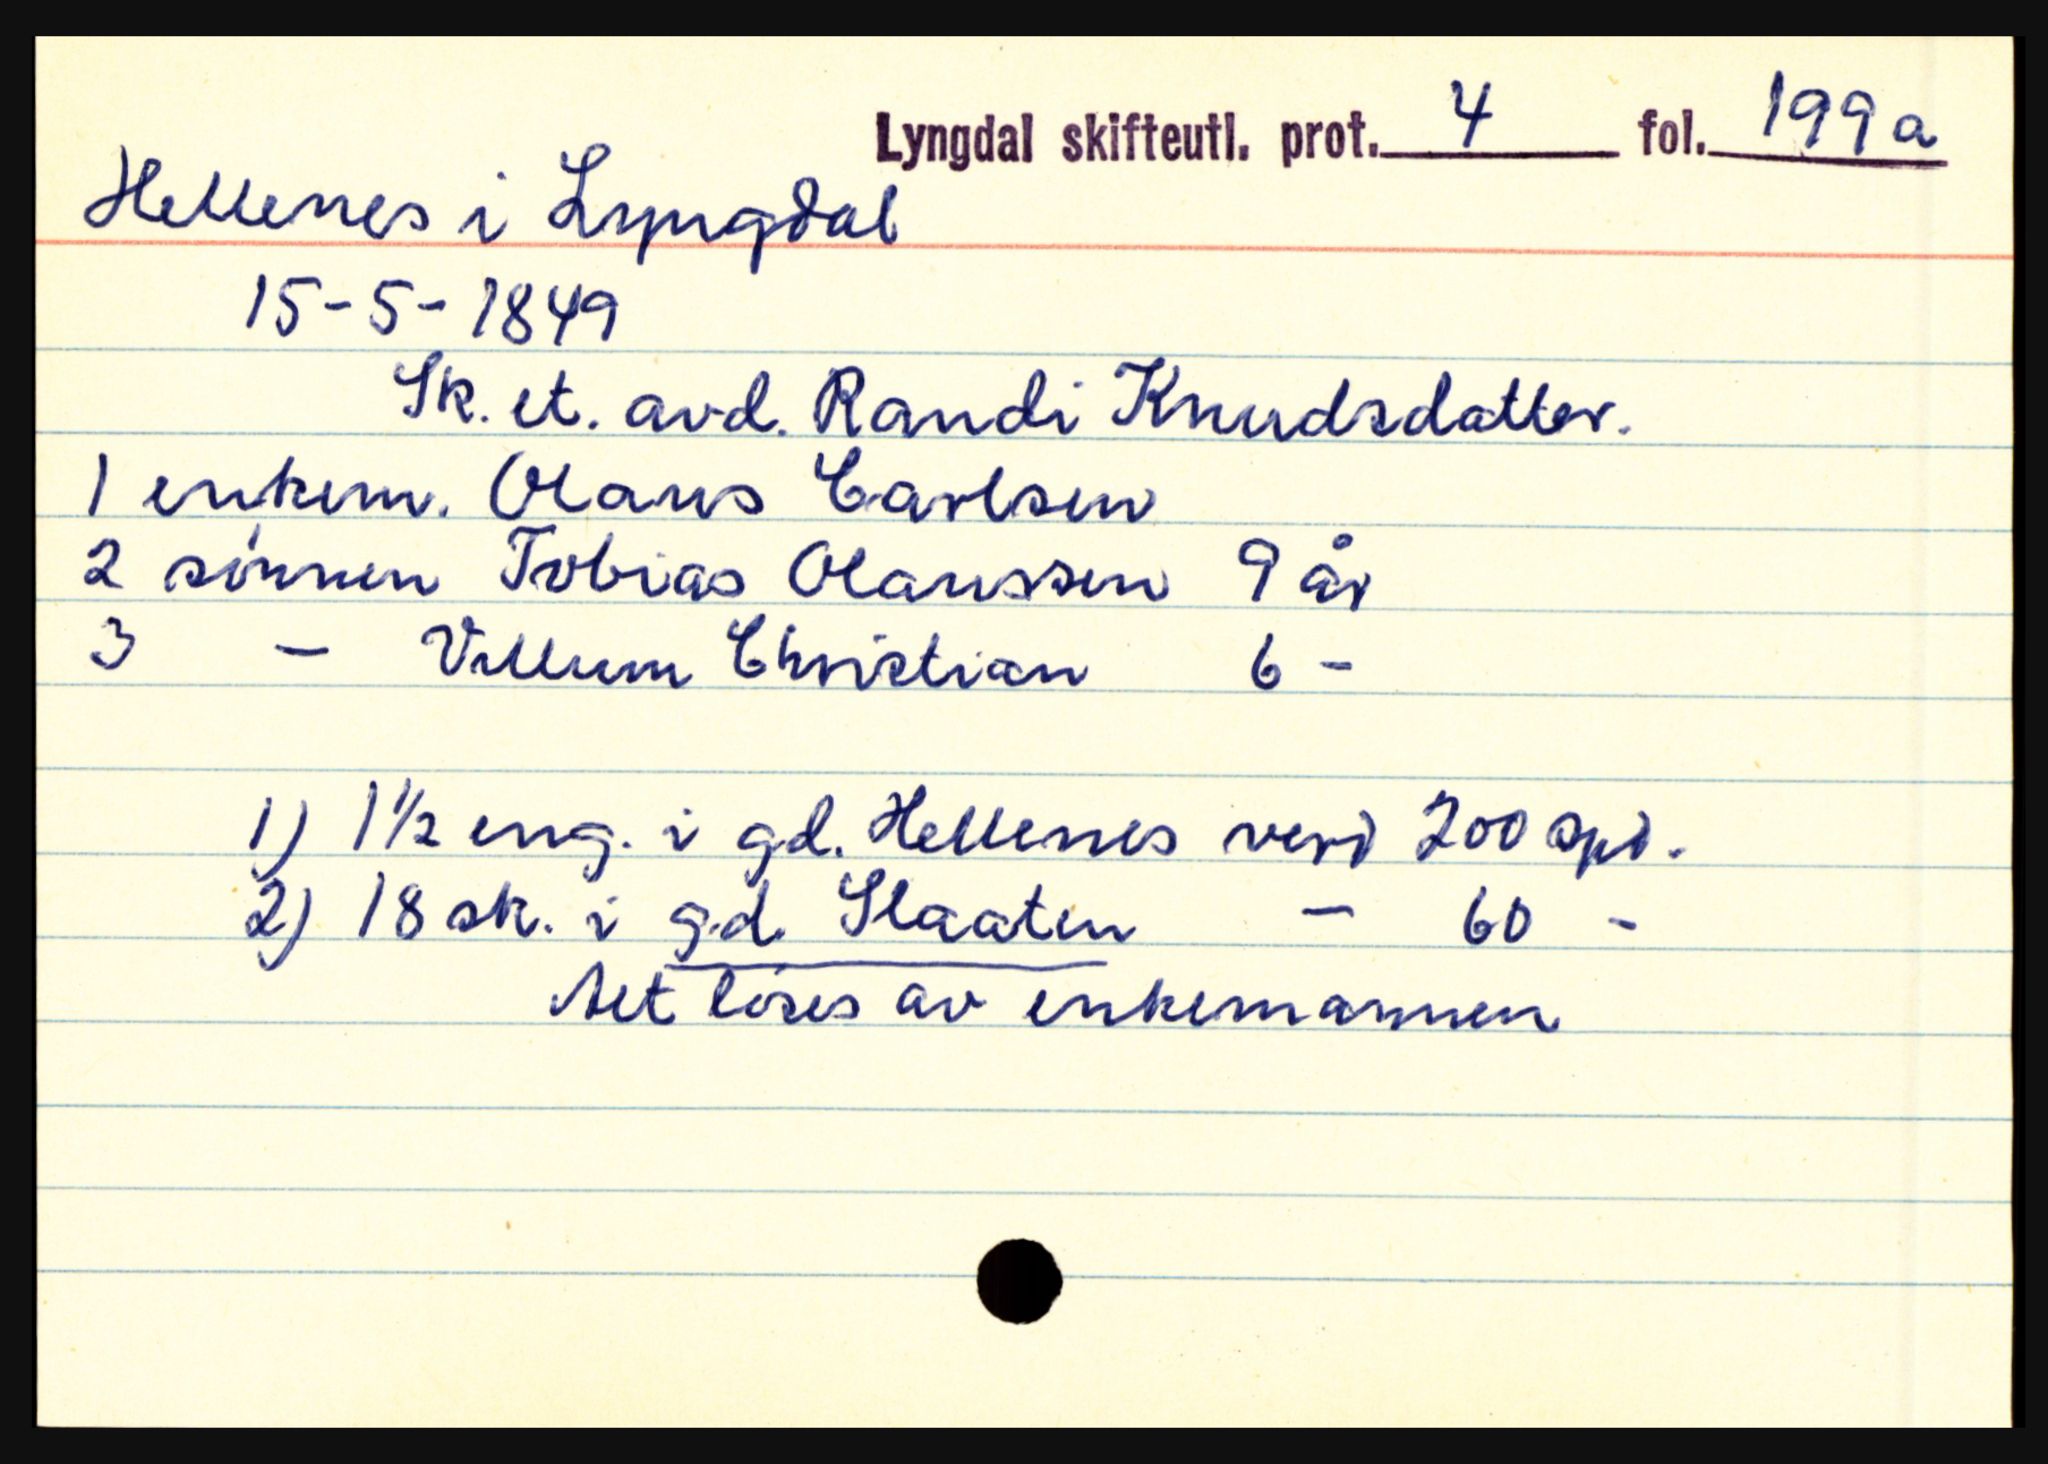 Lyngdal skifteutl. prot. 4 fol. 199a
Hellenes i Lyngdal
15-5-1849
Sk. et. avd. Randi Knudsdatter.
1 enkem. Olaus Carlsen
2 sónnen Tobias Olaussen 9 år
3 – Villum Christian 6 –
1) 1 1/2 eng. i gd. Hellenes verd 200 spd.
2) 18 sk. i gd. Slaaten – 60 –
Aet lóses av enkemannen